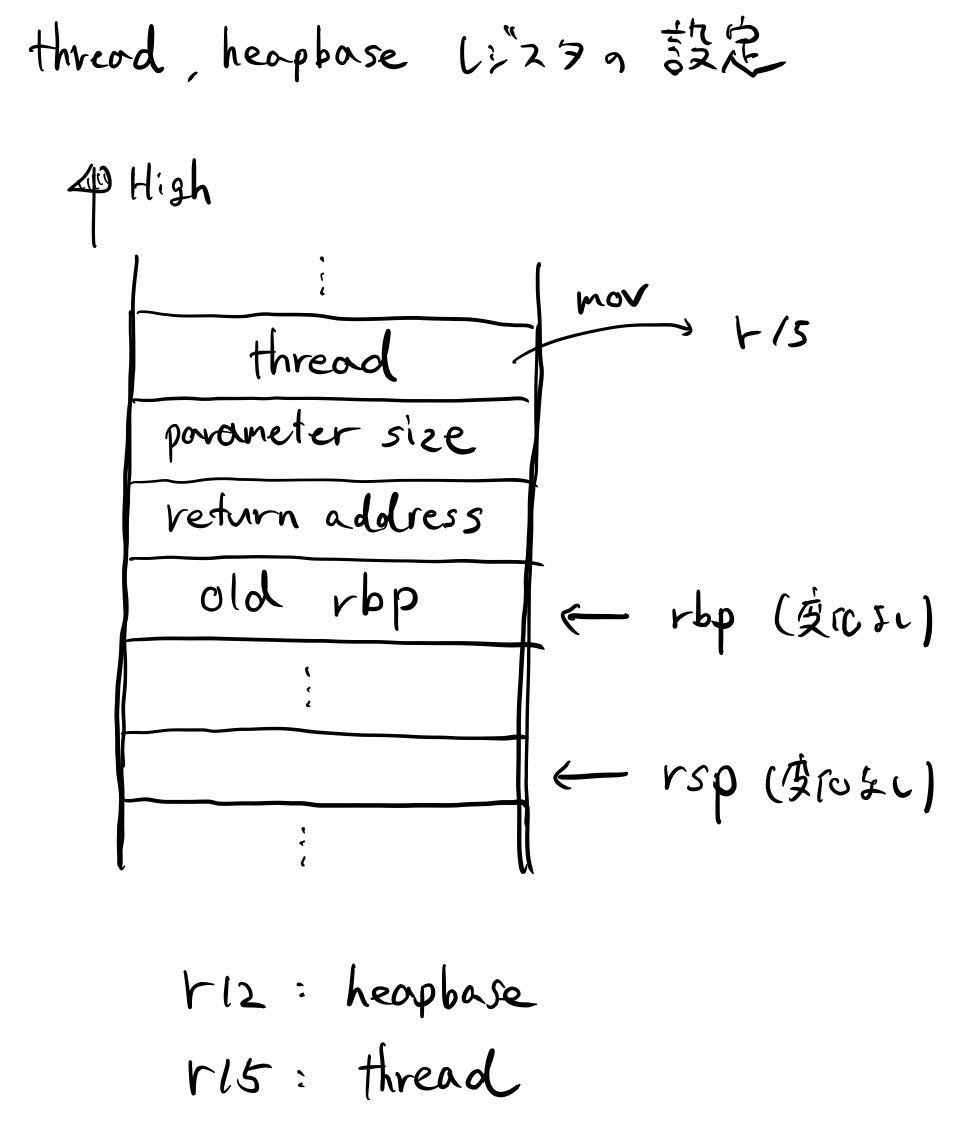 thread, heapbase レジスタの 設定
High
mov
thread
r15
parameter size
return address
old rbp
rbp (変化なし)
rsp (変化なし)
r12 : heapbase
r15 : thread